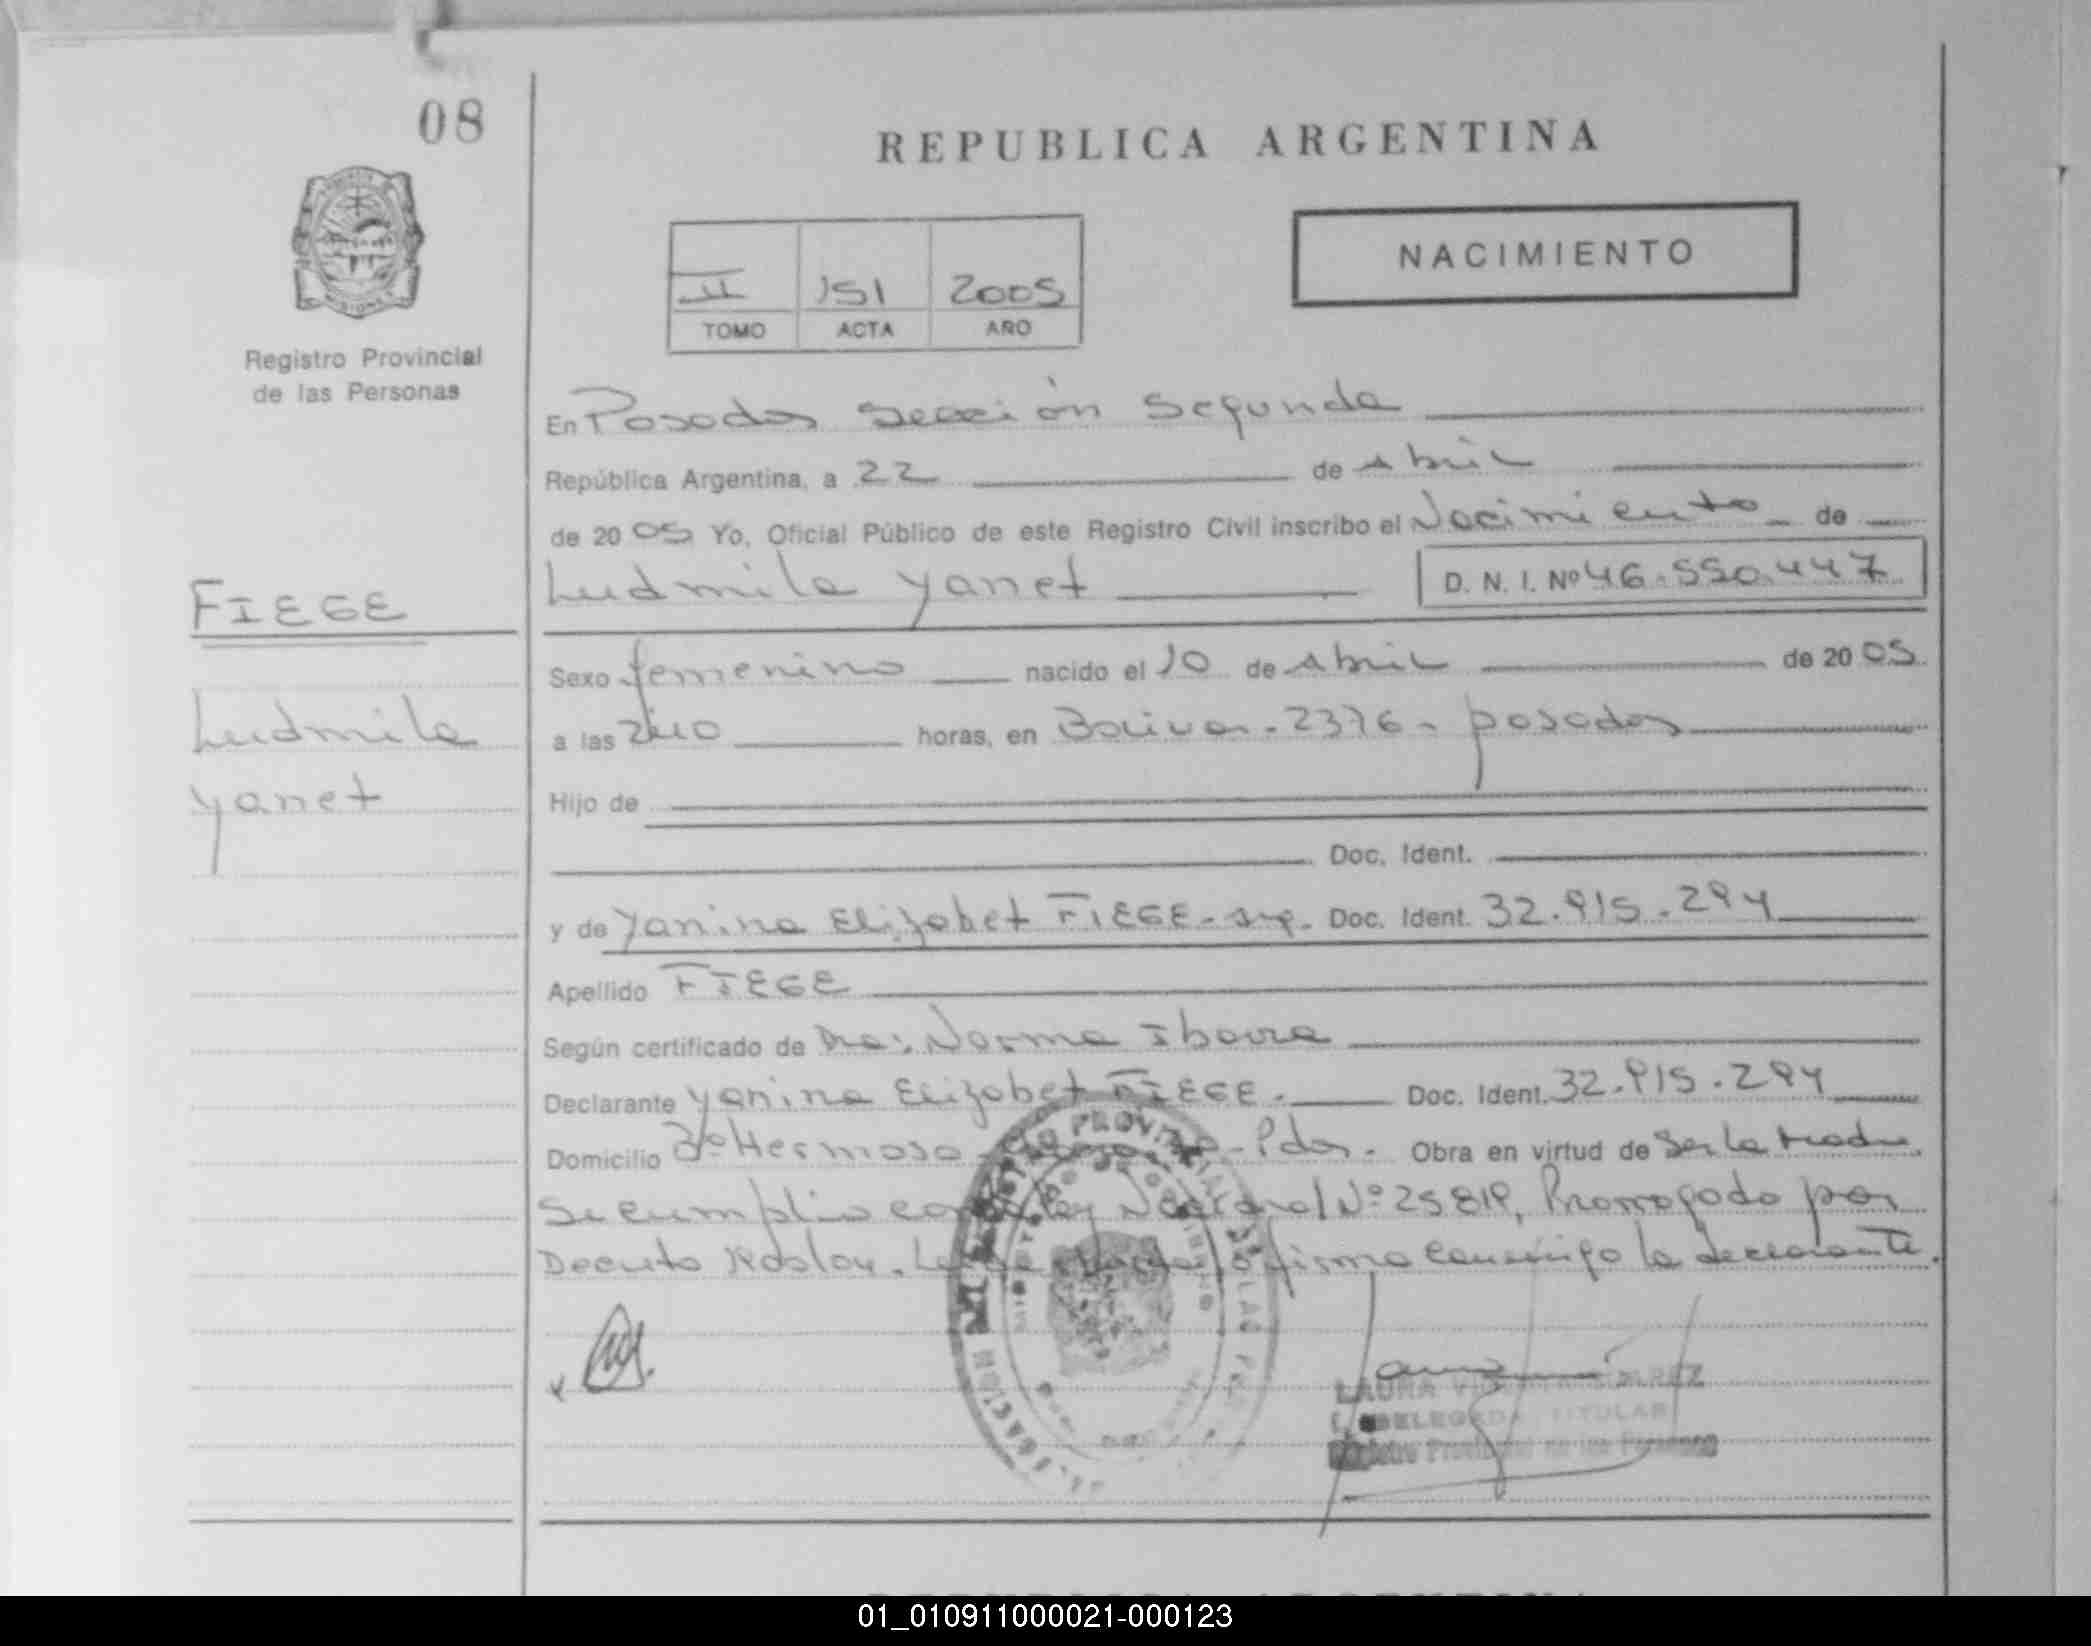 08
REPUBLICA ARGENTINA
NACIMIENTO
II 151 2005
TOMO ACTA AÑO
Registro Provincial
de las Personas
En Posadas Sección Segunda
República Argentina, a 22 de Abril
de 2005 Yo, Oficial Público de este Registro Civil inscribo el Nacimiento de
Ludmila Yanet D. N. I. Nº 46.550.447
FIEGE
Ludmila
Yanet
Sexo femenino nacido el 10 de Abril de 2005
a las horas, en Bolivar - 2376 - posadas
Hijo de
Doc. Ident.
y de Yanina Elizabet FIEGE - Doc. Ident. 32.915.294
Apellido FIEGE
Según certificado de Dra: Norma Ibarra
Declarante Yanina Elizabet FIEGE. Doc. Ident. 32.915.294
Domicilio Bº Hermoso - Pdas. Obra en virtud de Ser la madre.
Se cumplio con Ley Nacional Nº 25819, Prorrogado por
Decreto firma conmigo la declarante.
LAURA
DELEGADA TITULAR
Registro Provincial de las Personas
01_010911000021-000123